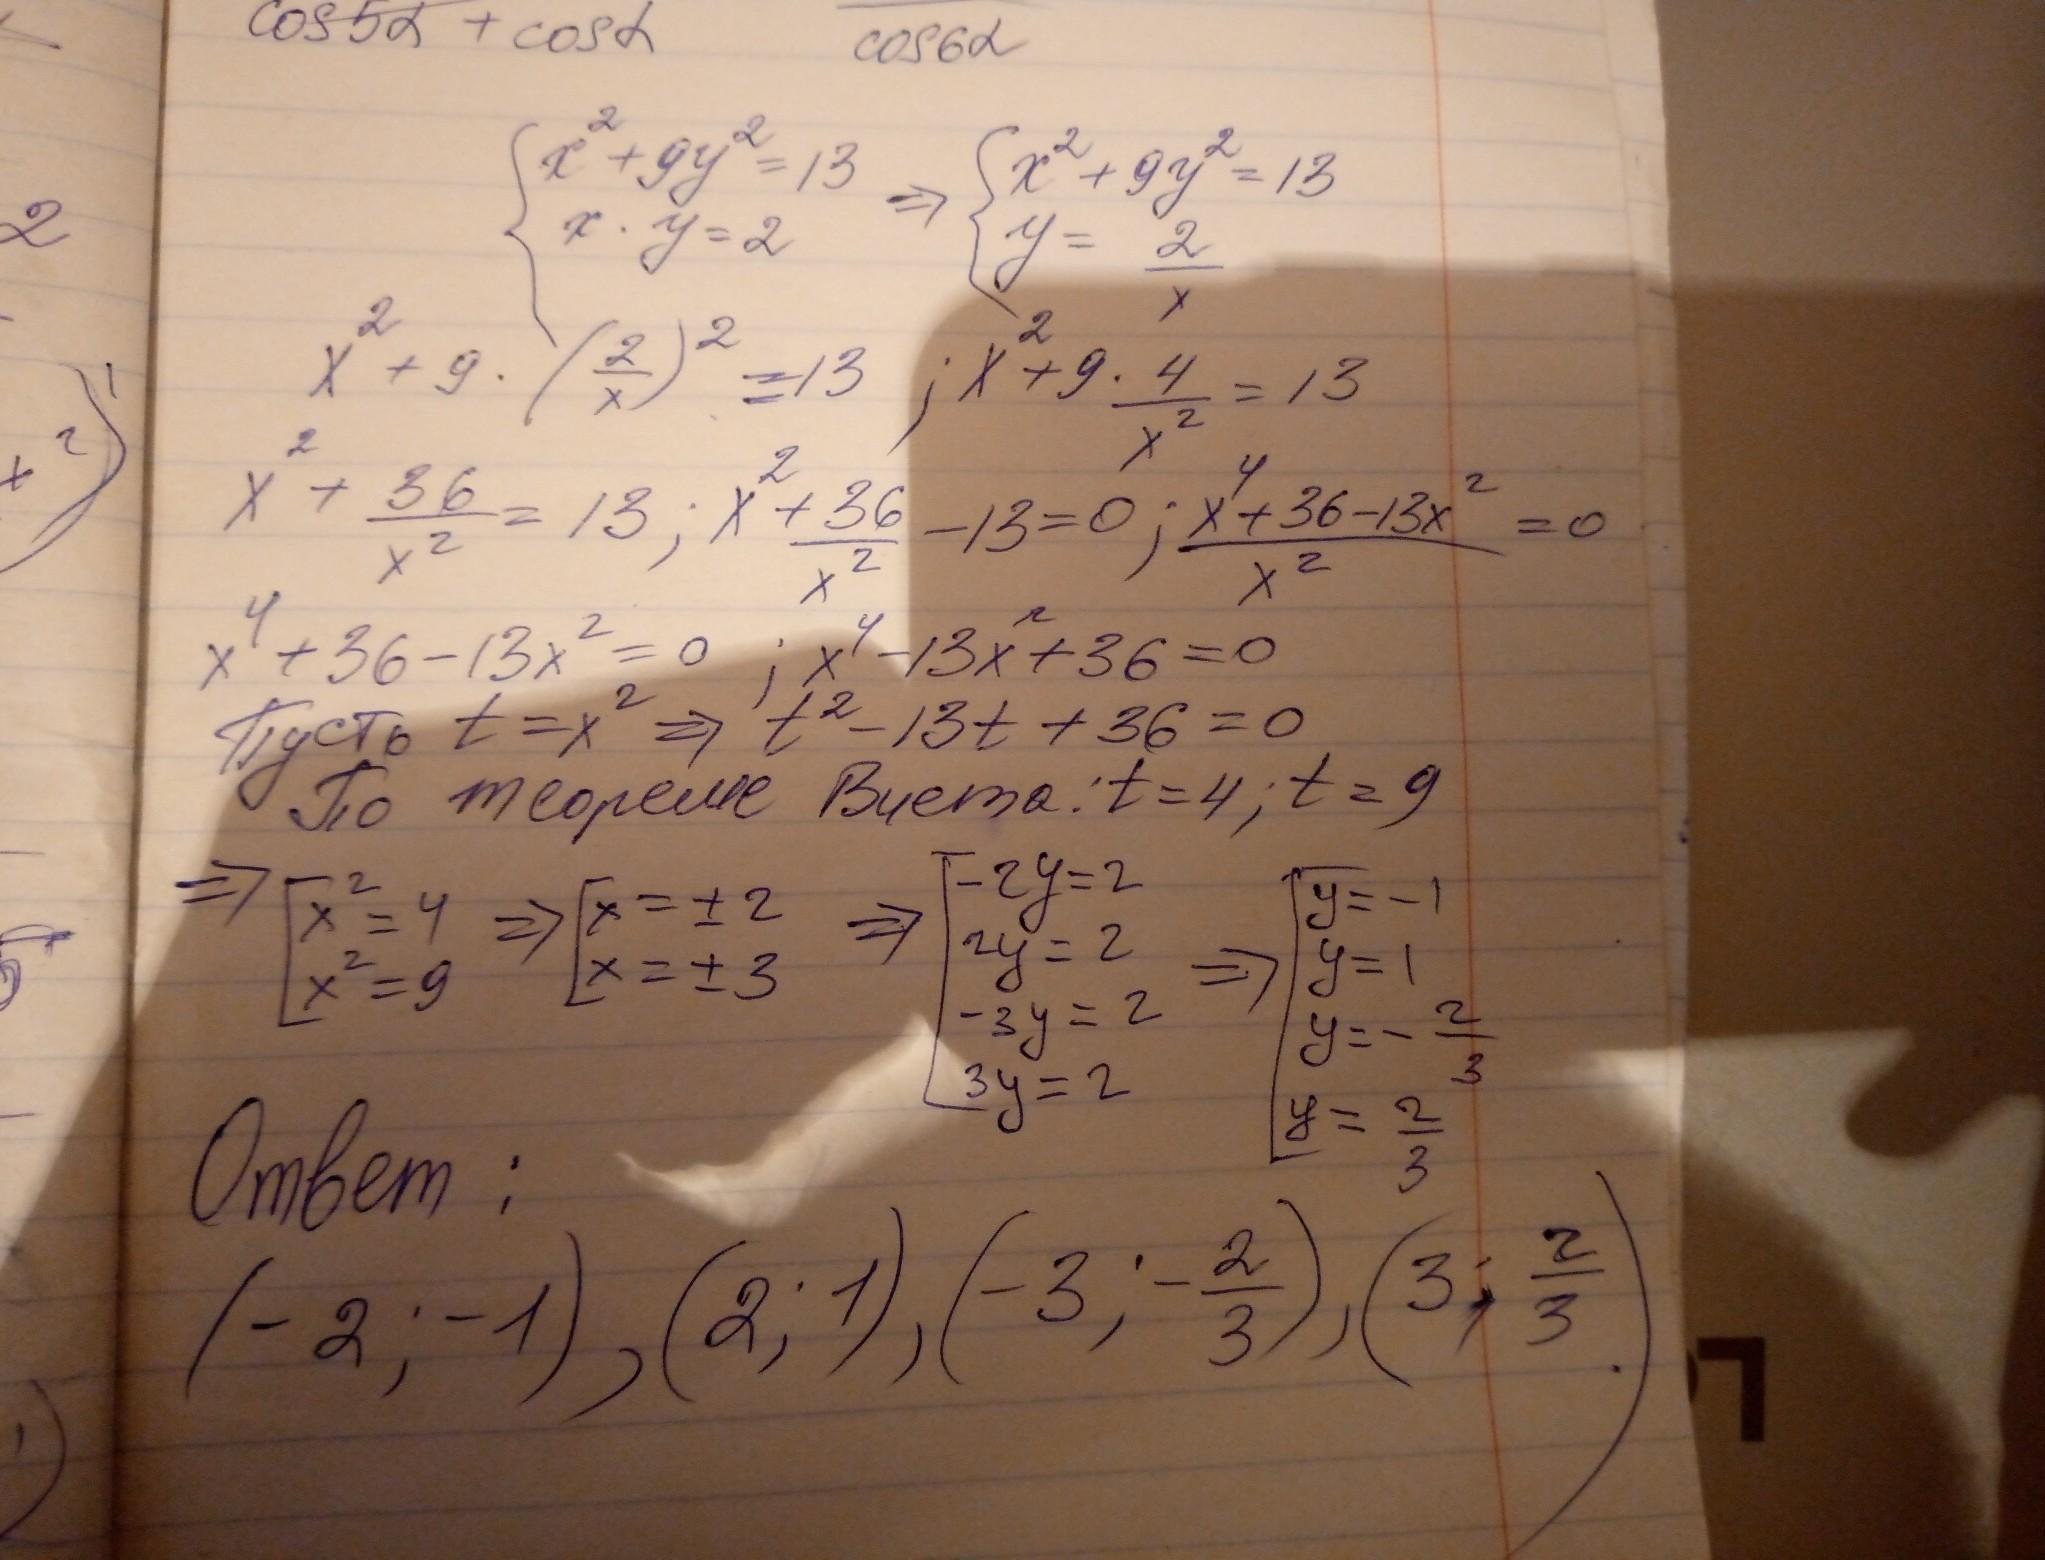 cos5α + cosα cos6α
{x² + 9y² = 13 => {x² + 9y² = 13
x · y = 2 y = 2/x
x² + 9 · (2/x)² = 13 ; x² + 9 · 4/x² = 13
x² + 36/x² = 13 ; x² + 36/x² - 13 = 0 ; (x⁴ + 36 - 13x²)/x² = 0
x⁴ + 36 - 13x² = 0 ; x⁴ - 13x² + 36 = 0
Пусть t = x² => t² - 13t + 36 = 0
По теореме Виета: t = 4; t = 9
=> [x² = 4 => [x = ±2 => [-2y = 2 => [y = -1
x² = 9 x = ±3 2y = 2 y = 1
-3y = 2 y = -2/3
3y = 2 y = 2/3
Ответ:
(-2; -1), (2; 1), (-3; -2/3), (3; 2/3).